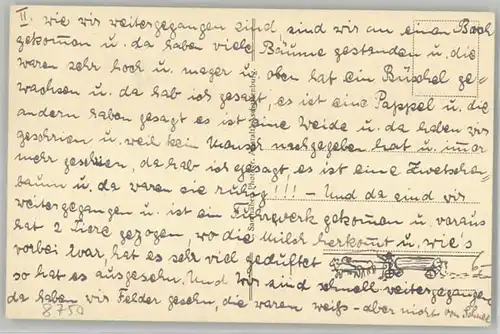 II. wie wir weitergegangen sind, sind wir an einen Bach
gekommen u. da haben viele Bäume gestanden u. die
waren sehr hoch u. mager u. oben hat ein Büschel ge-
wachsen u. da hab ich gesagt, es ist eine Pappel u. die
andern haben gesagt es ist eine Weide u. da haben wir
geschrien u. weil kein Mensch nachgegeben hat u. immer
mehr geschrien, da hab ich gesagt, es ist eine Zwetschen-
baum u. da waren sie ruhig!!! - Und da sind wir
weitergegangen u. ist ein Fuhrwerk gekommen u. voraus
hat 2 Tiere gezogen, wo die Milch herkommt u. wie's
vorbei war, hat es sehr viel gedüftet
so hat es ausgesehn. Und wir sind schnell weitergegangen
da haben wir Felder gesehn, die waren weiß - aber nicht von Schnee
8750